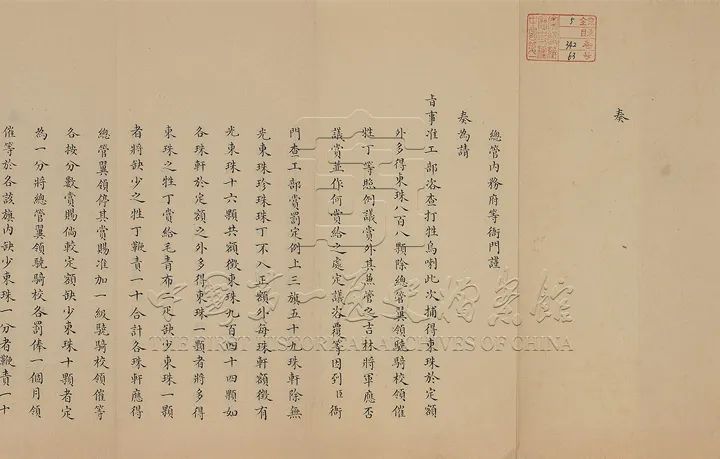 5
342
63
奏
總管內務府等衙門謹
奏為請
旨事准工部咨查打牲烏喇此次捕得東珠於定額
外多得東珠八百八顆除總管翼領驍騎校領催
牲丁等照例議賞外其兼管之吉林將軍應否
議賞並作何賞給之處定議咨覆等因到臣衙
門查工部賞罰定例上三旗五十九珠軒除無
光東珠珍珠珠丁不入正額外每珠軒額徵有
光東珠十六顆共額徵東珠九百四十四顆如
各珠軒於定額之外多得東珠一顆者將多得
東珠之牲丁賞給毛青布二疋缺少東珠一顆
者將缺少之牲丁鞭責一十合計各珠軒應得
總管翼領停其賞賜准加一級驍騎校領催等
各按分數賞賜倘較定額缺少東珠十顆者定
為一分將總管翼領驍騎校各罰俸一個月領
催等於各該旗內缺少東珠一分者鞭責一十
中國第一歷史檔案館
THE FIRST HISTORICAL ARCHIVES OF CHINA